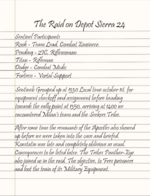 The Raid on Depot Sierra 24
Sentinel Participants
Rook - Team Lead, Combat Engineer
Pending - 27C, Rifleman
Titan - Rifleman
Drake - Combat Medic
Fortress - Aerial Support
Sentinel Grouped up at 1930 Local time october 18. for
equipment checkoff and assignment before heading
towards the rally point at 1950, arriving at 2100 we
encountered Milan's team and the Seeker Tribe.
After some time the remnants of the Apostles also showed
up before we were taken into the cave and briefed.
Konstatin was late and completely oblivious as usual.
Consequences to be listed later. The Tribes
also joined us in the raid. The objective, to Free prisoners
and loot the train of its Military Equipment.